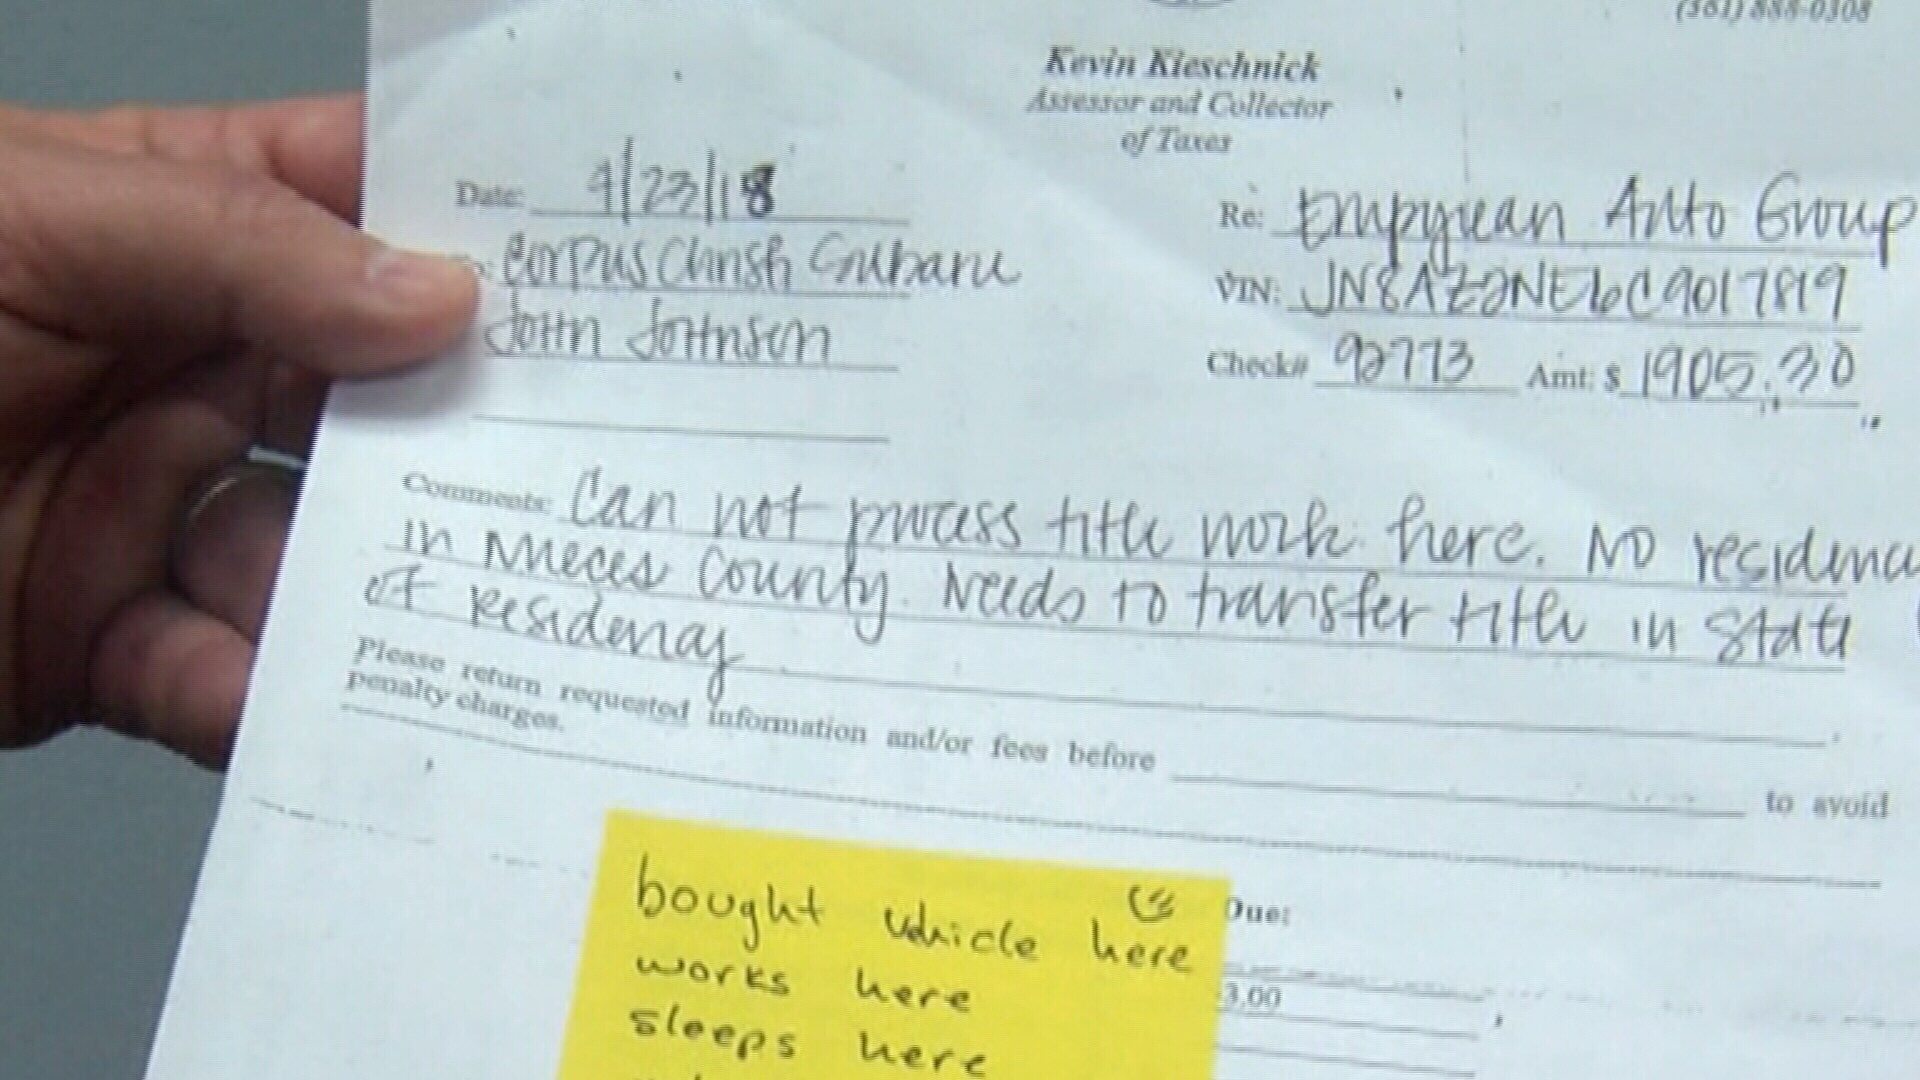 (361) 888-0308
Kevin Kieschnick
Assessor and Collector
of Taxes
Date: 4/23/18
Corpus Christi Subaru
John Johnson
Re: Empyrean Auto Group
VIN: JN8AZ2NE6C9017819
Check# 92773 Amt: $ 1905.30
Comments: Can not process title work here. No residency
in Nueces County. Needs to transfer title in state
of residency
Please return requested information and/or fees before to avoid
penalty charges.
Due:
3.00
bought vehicle here
works here
sleeps here